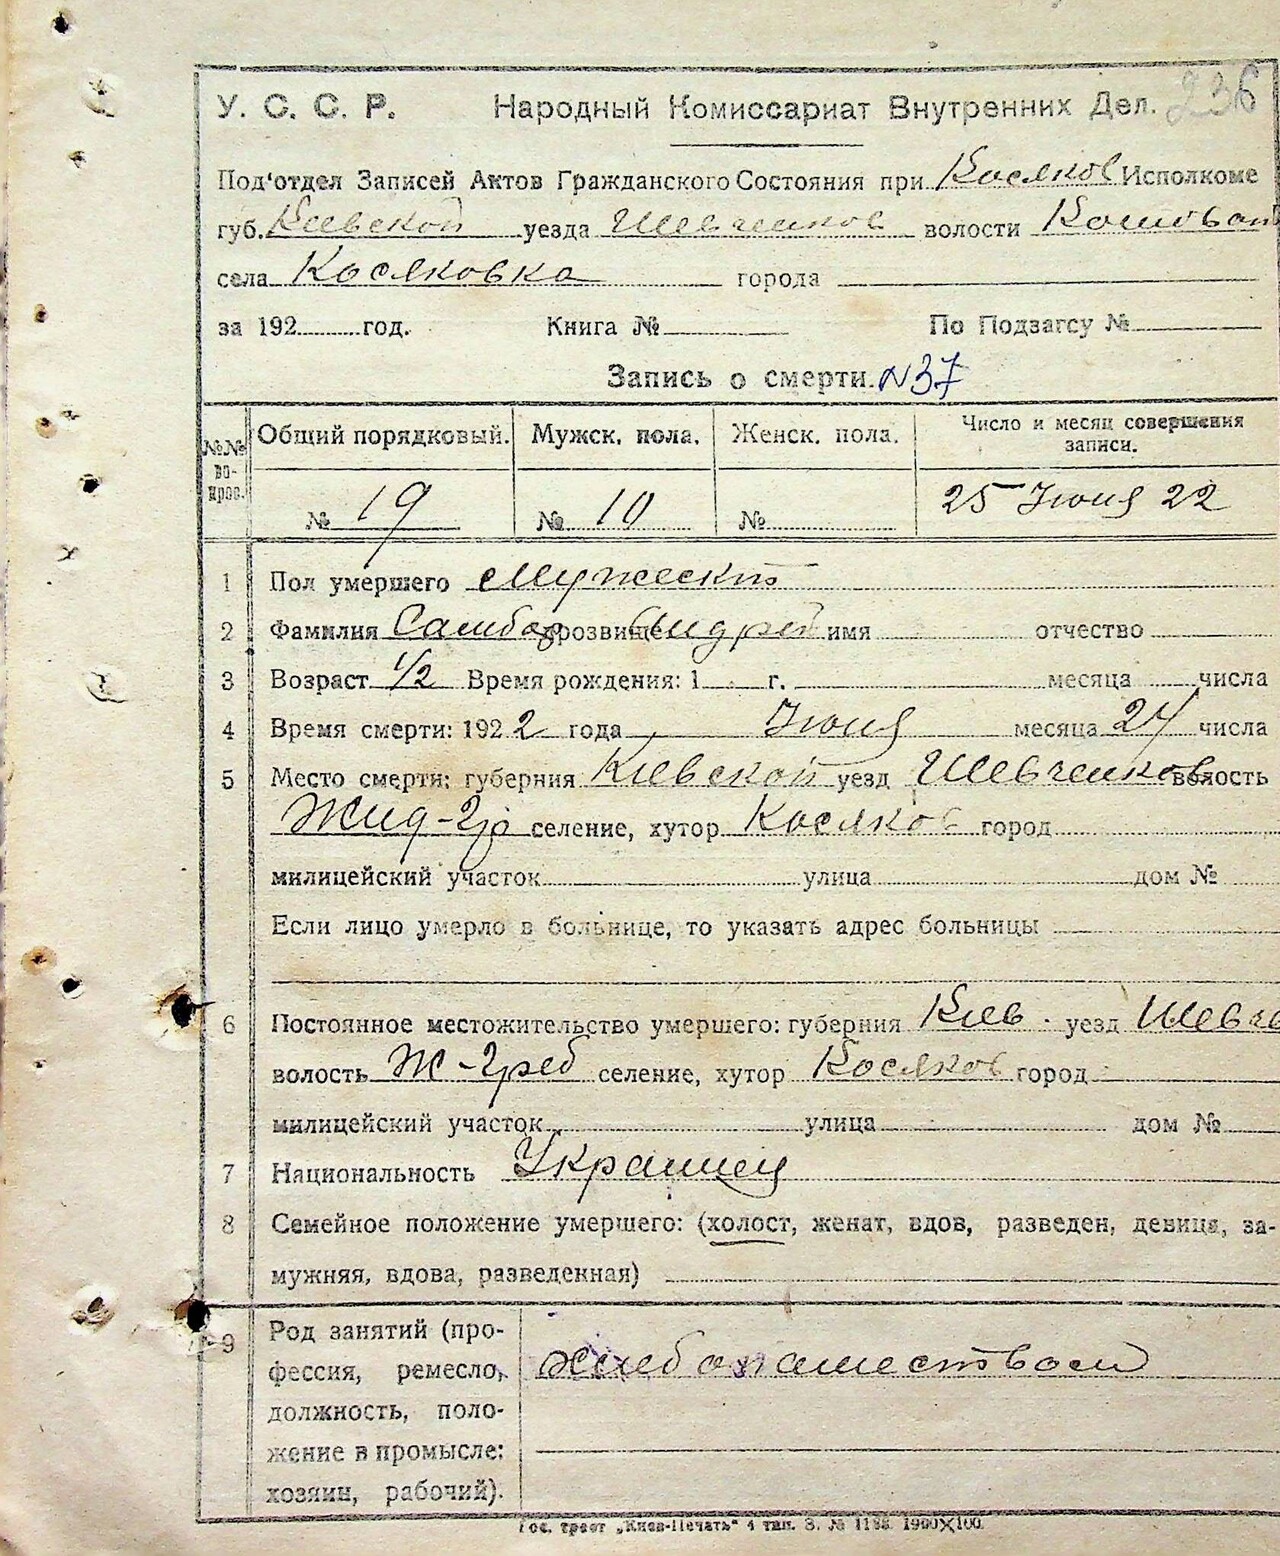 236
У. С. С. Р. Народный Комиссариат Внутренних Дел.
Под'отдел Записей Актов Гражданского Состояния при Косяков Исполкоме
губ. Киевской уезда Шевченков волости Кошоват
села Косяковка города
за 192 год. Книга № По Подзагсу №
Запись о смерти. N 37
№№ вопрос. Общий порядковый. Мужск. пола. Женск. пола. Число и месяц совершения записи.
№ 19 № 10 № 25 Июня 22
1 Пол умершего Мужеский
2 Фамилия прозвище Андрей имя отчество
3 Возраст 1/2 Время рождения: 1 г. месяца числа
4 Время смерти: 1922 года Июня месяца 24 числа
5 Место смерти: губерния Киевской уезд Шевченков волость
Жид-Гр селение, хутор Косяков город
милицейский участок улица дом №
Если лицо умерло в больнице, то указать адрес больницы
6 Постоянное местожительство умершего: губерния Киев. уезд Шевче
волость Ж-Греб селение, хутор Косяков город
милицейский участок улица дом №
7 Национальность Украинец
8 Семейное положение умершего: (холост, женат, вдов, разведен, девица, за-
мужняя, вдова, разведенная)
9 Род занятий (про-
фессия, ремесло, хлебопашеством
должность, поло-
жение в промысле:
хозяин, рабочий).
Гос. трест „Киев-Печать" 4 тип. З. № 1188. 1900×100.